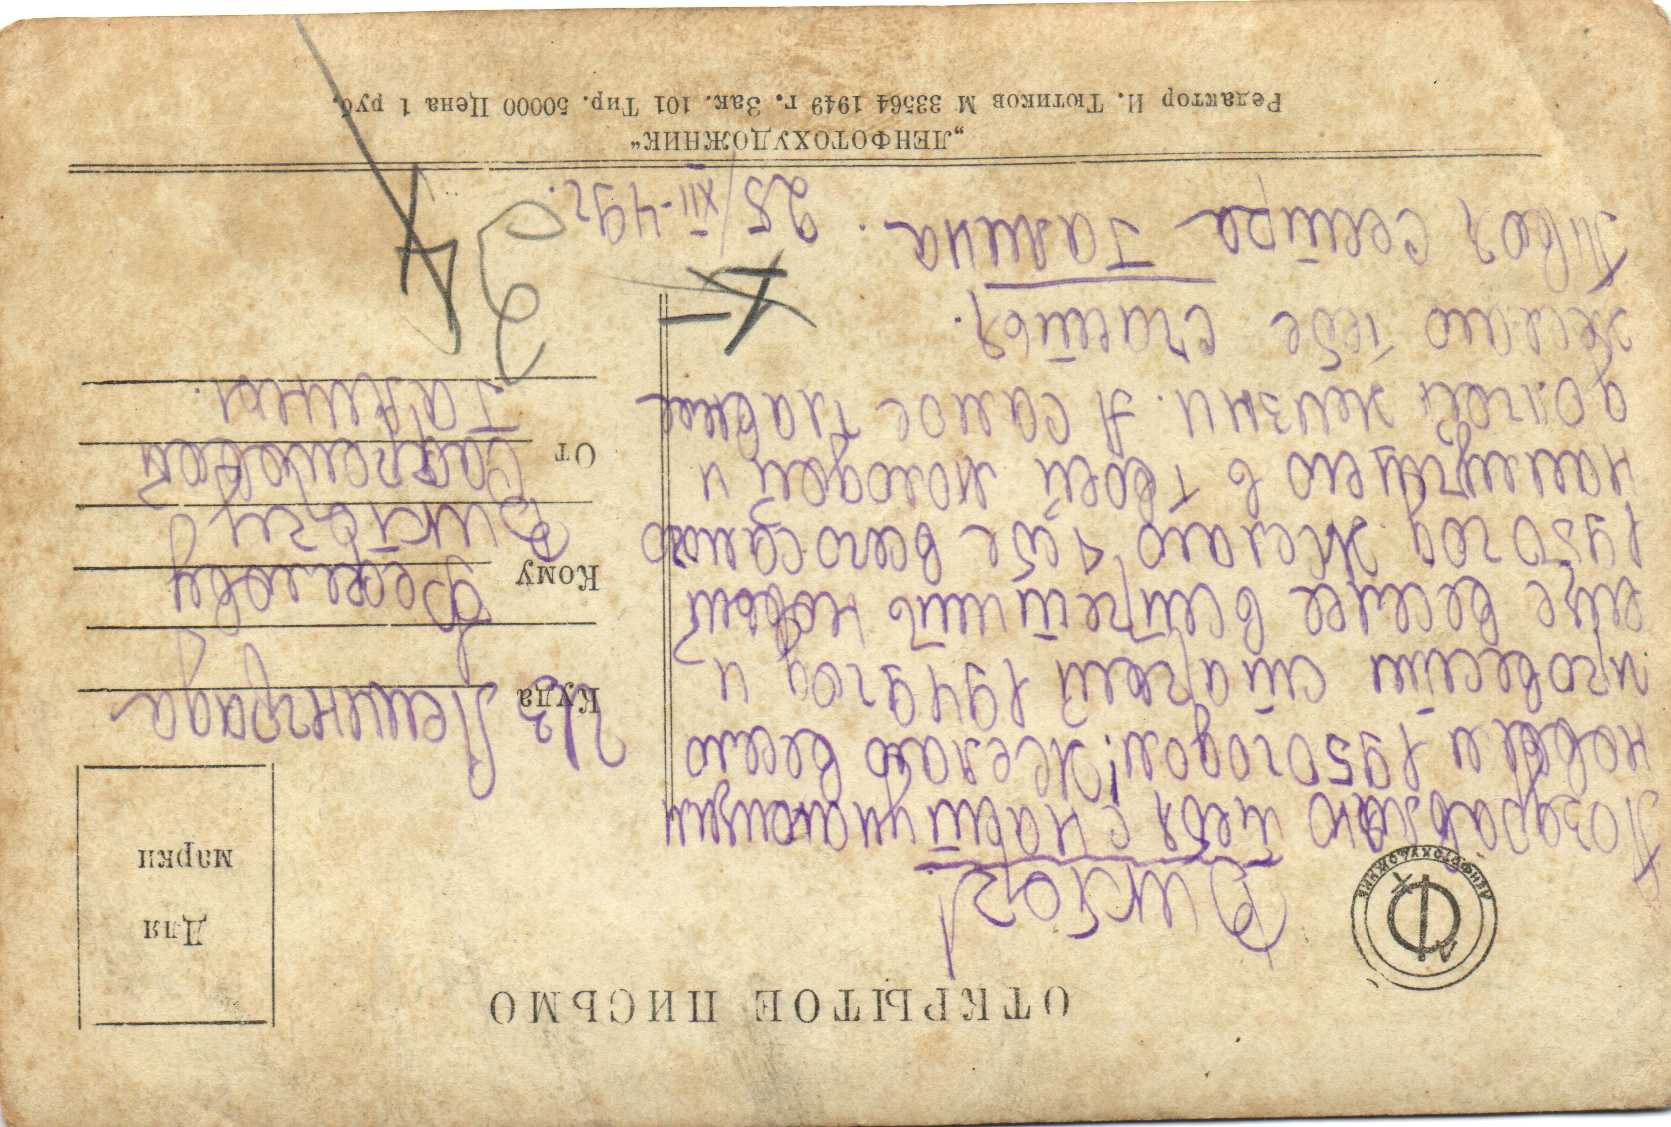 ОТКРЫТОЕ ПИСЬМО
ЛЕНФОТОХУДОЖНИК
Для
марки
Виктор!
Поздравляю тебя с наступающим
новым 1950 годом! Желаю весело
провести старый 1949 год и
еще веселее встретить новый
1950 год Желаю тебе всего самого
наилучшего в твоей молодой и
долгой жизни. А самое главное
желаю тебе счастья.
Твоя сестра Галина. 25/XII-49г.
Куда
Из Ленинграда
Кому
Виктору
От
Галины.
„ЛЕНФОТОХУДОЖНИК“
Редактор И. Тютиков М 33564 1949 г. Зак. 101 Тир. 50000 Цена 1 руб.